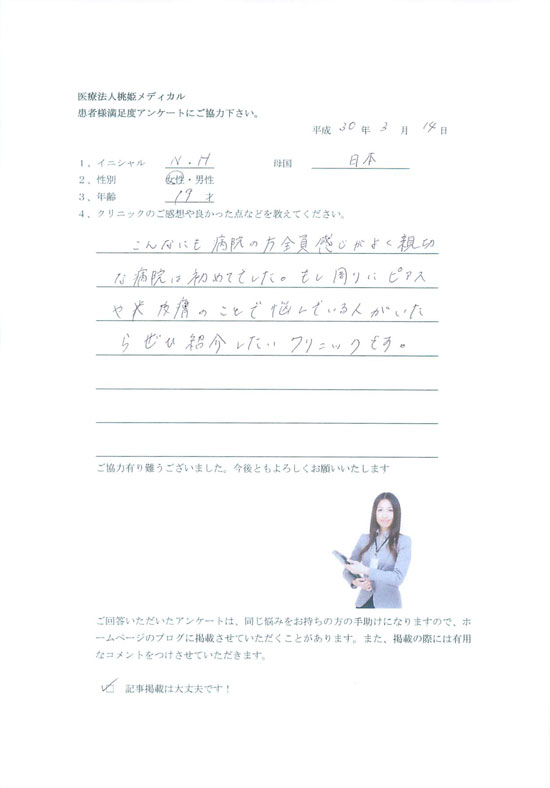 医療法人桃姫メディカル
患者様満足度アンケートにご協力下さい。
平成 30 年 3 月 14 日
1、イニシャル N.H 母国 日本
2、性別 女性・男性
3、年齢 19 才
4、クリニックのご感想や良かった点などを教えてください。
こんなにも病院の方全員感じがよく親切
な病院は初めてでした。もし周りにピアス
や皮膚のことで悩んでいる人がいた
らぜひ紹介したいクリニックです。
ご協力有り難うございました。今後ともよろしくお願いいたします
ご回答いただいたアンケートは、同じ悩みをお持ちの方の手助けになりますので、ホ
ームページのブログに掲載させていただくことがあります。また、掲載の際には有用
なコメントをつけさせていただきます。
記事掲載は大丈夫です！